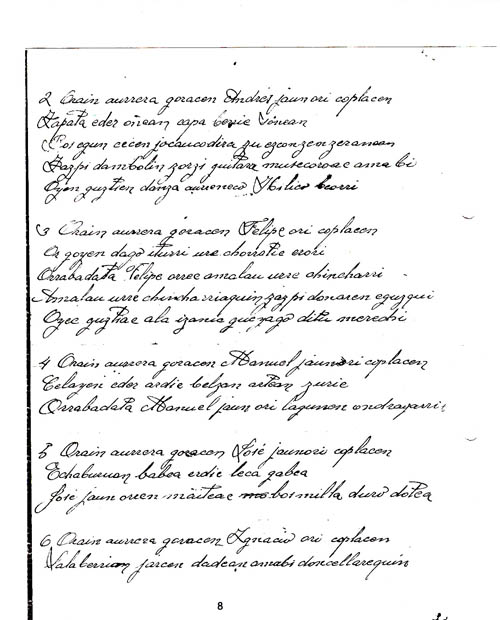 2 Orain aurrera goracen Andres jaun ori coplacen
Zapata eder oñean capa berrie soñean
Bos egun ceien jocaucodira zu ezconzen zeranean
Zazpi dambolin zorzi guitarra musecoroac ama bi
Oyen guztien danza aurreneco
3 Orain aurrera goracen Felipe ori coplacen
Or goyen dago iturri ure chorrotic erori
Orrabadata Felipe orrec amalau urre chincharri
Amalau urre chincharriaquin zazpi donaren eguzqui
Oyec guztiac ala izania gueyago ditu merechi
4 Orain aurrera goracen Manuel jaun ori coplacen
Celayen eder ardie belzan artean zurie
Orrabadata Manuel jaun ori lagunen ondragarrie
5 Orain aurrera goracen José jaunori coplacen
Echaburuan babea erdie leca gabea
José jaun orren maiteac bosmilla duro dotea
6 Orain aurrera goracen Ignacio ori coplacen
jarcen dadean amabi doncellarequin
8